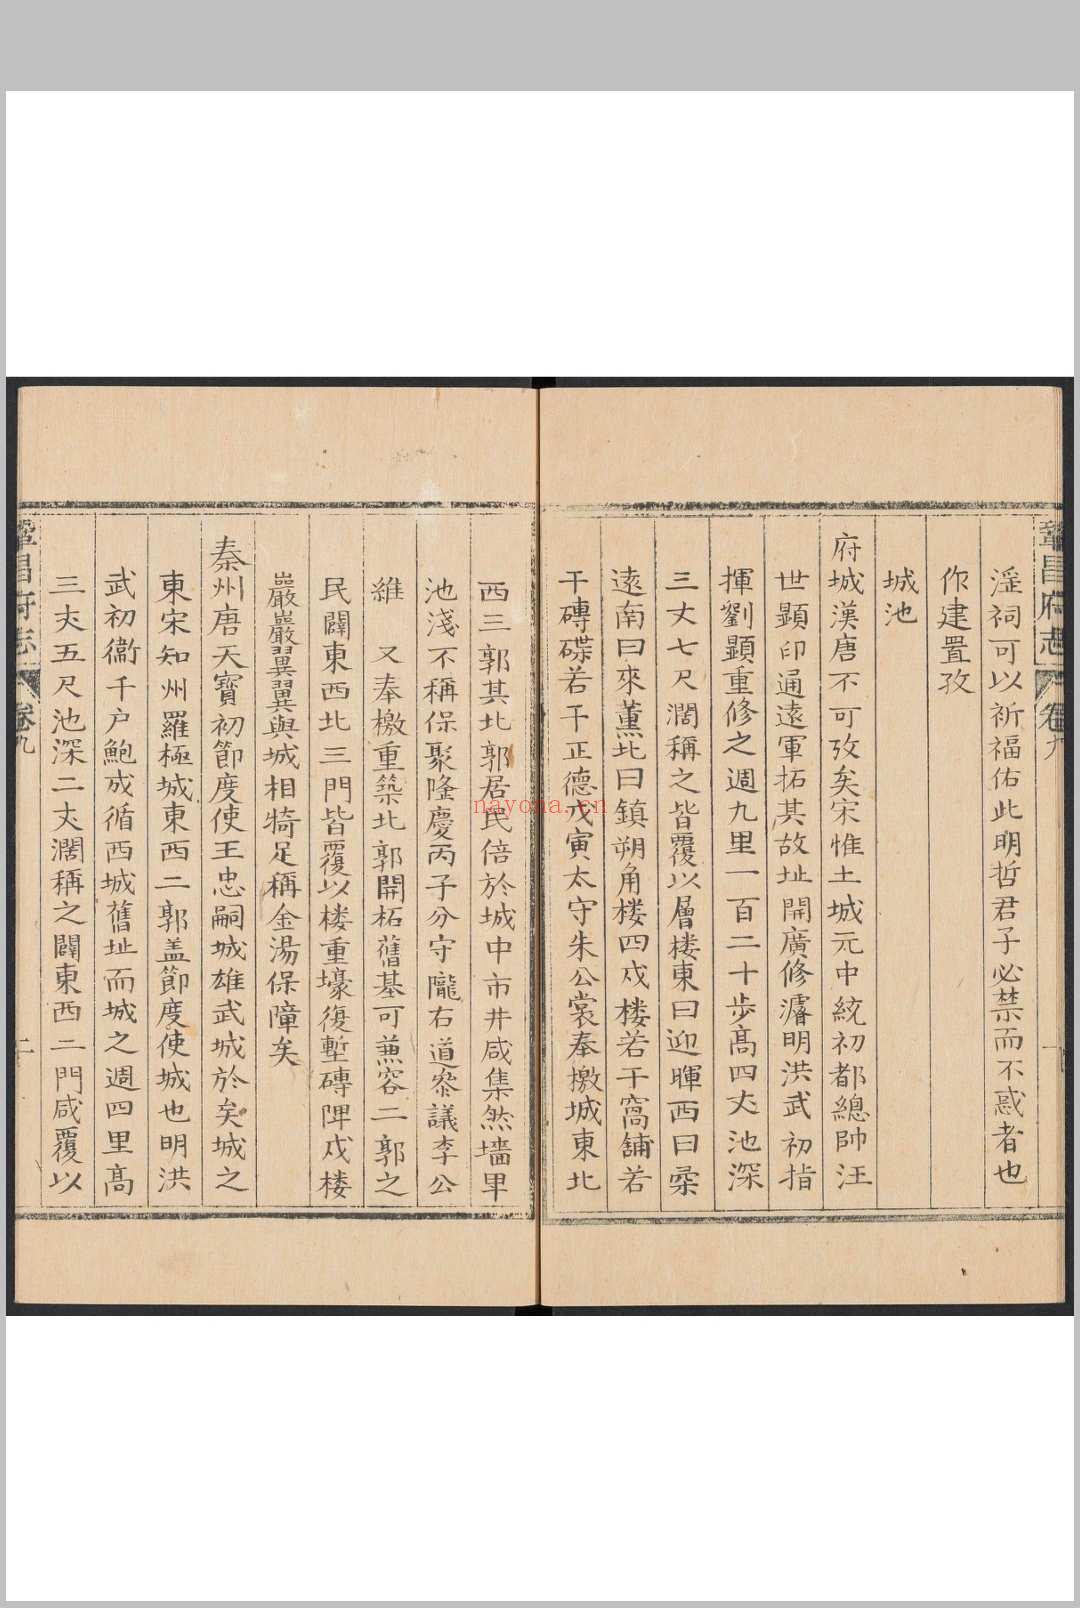 鞏昌府志 卷九
淫祠可以祈福佑此明哲君子必禁而不惑者也
作建置攷
城池
府城漢唐不可攷矣宋惟土城元中統初都總帥汪
世顯印通遠軍拓其故址開廣修濬明洪武初指
揮劉顯重修之週九里一百二十步高四丈池深
三丈七尺濶稱之皆覆以層楼東曰迎暉西曰柔
遠南曰來薰北曰鎮朔角楼四戍楼若干窩舖若
干磚碟若干正德戊寅太守朱公裳奉檄城東北
西三郭其北郭居民倍於城中市井咸集然墻卑
池淺不稱保聚隆慶丙子分守隴右道叅議李公
維 又奉檄重築北郭開柘舊基可兼容二郭之
民闢東西北三門皆覆以楼重壕復塹磚陴戍楼
巖巖翼翼與城相犄足稱金湯保障矣
秦州唐天寶初節度使王忠嗣城雄武城於矣城之
東宋知州羅極城東西二郭盖節度使城也明洪
武初衞千户鮑成循西城舊址而城之週四里高
三丈五尺池深二丈濶稱之闢東西二門咸覆以
鞏昌府志 卷九 二
nayona.cn